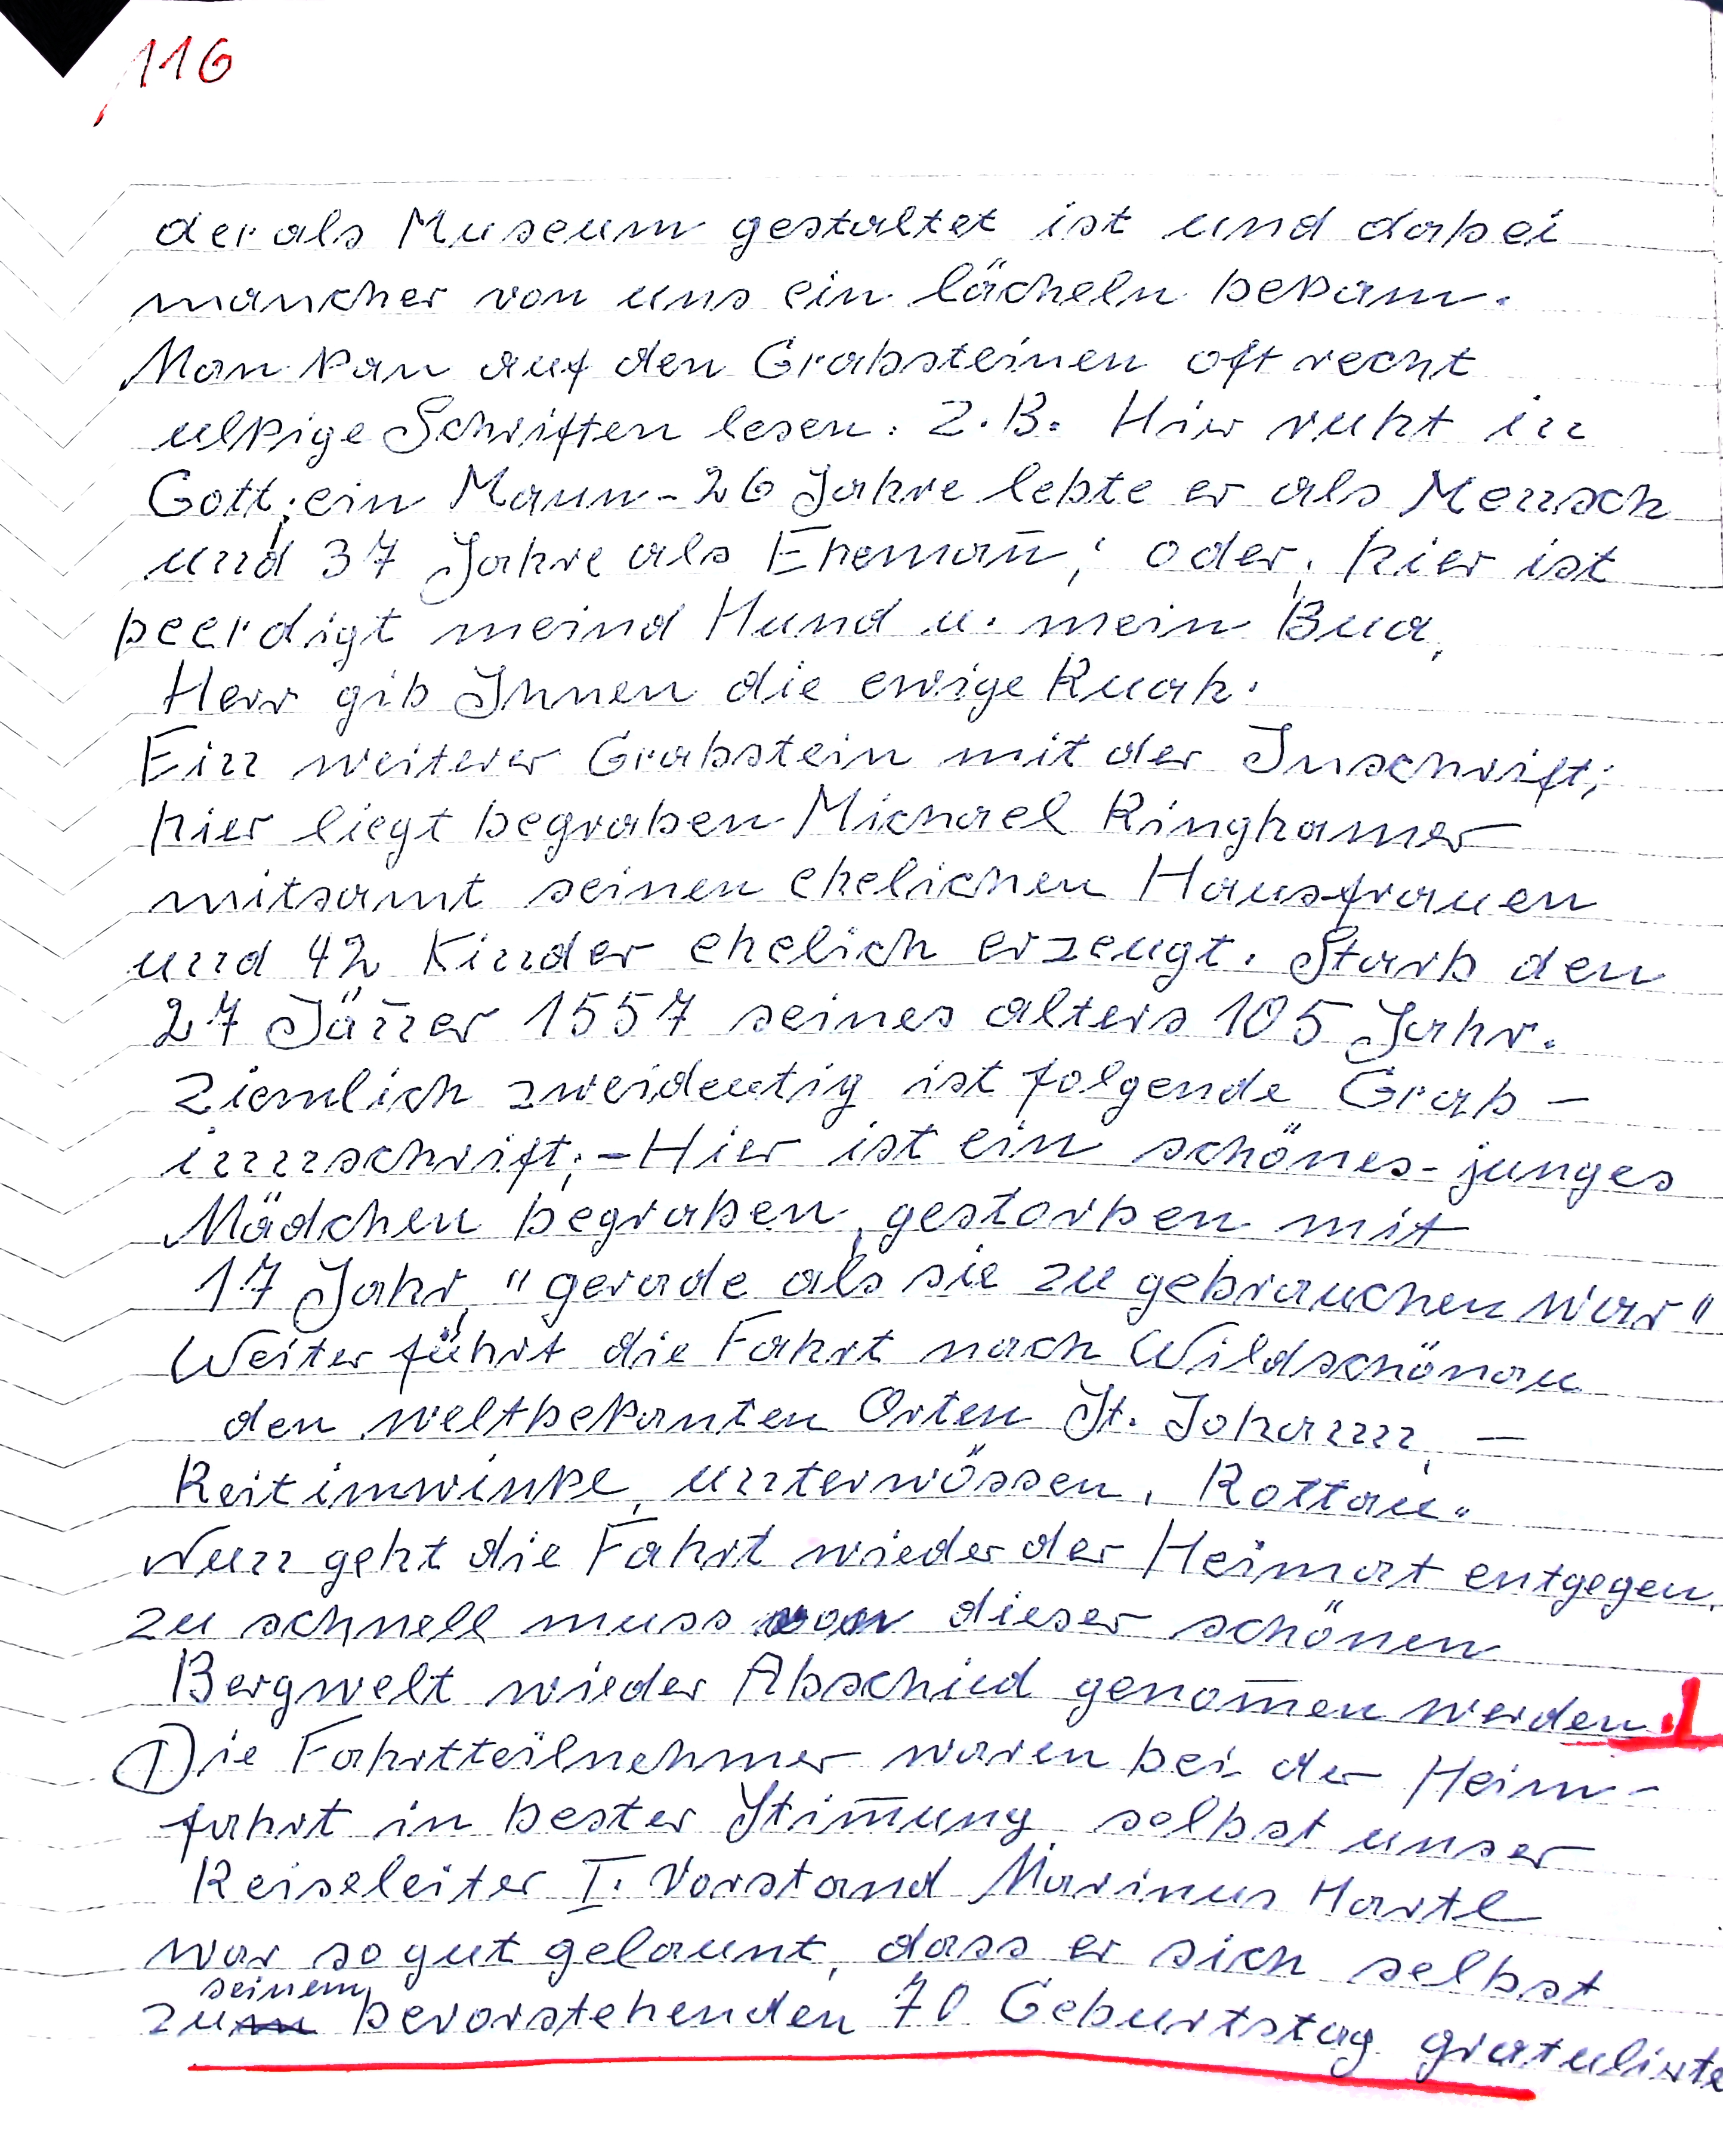 116
der als Museum gestaltet ist und dabei
mancher von uns ein lächeln bekam.
Man kan auf den Grabsteinen oft recht
ulkige Schriften lesen. Z.B. Hier ruht in
Gott; ein Mann - 26 Jahre lebte er als Mensch
und 37 Jahre als Eheman̄; oder, hier ist
beerdigt meind Hund u. mein Bua,
Herr gib Ihnen die ewige Ruah.
Ein weiterer Grabstein mit der Inschrift;
hier liegt begraben Michael Ringhamer
mitsamt seinen ehelichen Hausfrauen
und 42 Kinder ehelich erzeugt. Starb den
27 Jän̄er 1557 seines alters 105 Jahr.
Ziemlich zweideutig ist folgende Grab-
innschrift; - Hier ist ein schönes - junges
Mädchen begraben, gestorben mit
17 Jahr, "gerade als sie zu gebrauchen war"
Weiter führt die Fahrt nach Wildschönau
den weltbekanten Orten St. Johann, -
Reitimwinke, unterwössen, Rottau.
Nun geht die Fahrt wieder der Heimat entgegen,
zu schnell muss von dieser schönen
Bergwelt wieder Abschied genom̄en werden.
Die Fahrtteilnehmer waren bei der Heim-
fahrt in bester Stim̄ung selbst unser
Reiseleiter I. Vorstand Marinus Hartl
war so gut gelaunt, dass er sich selbst
zu seinem bevorstehenden 70 Geburtstag gratulierte